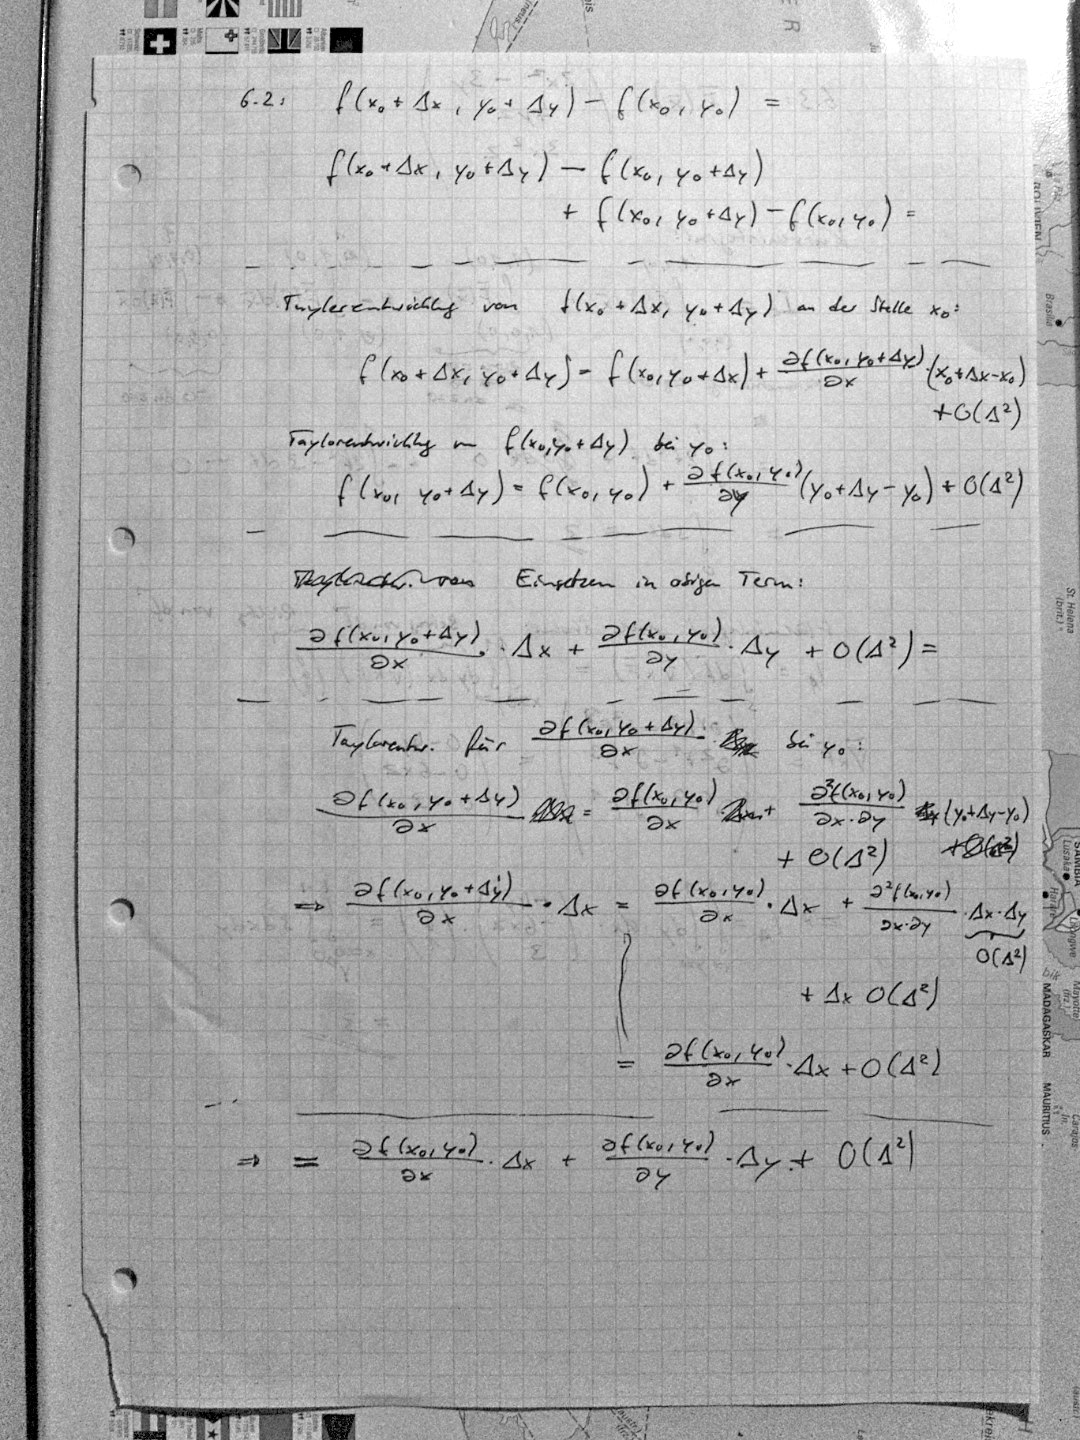 6.2: f(x₀ + Δx, y₀ + Δy) − f(x₀, y₀) =
f(x₀ + Δx, y₀ + Δy) − f(x₀, y₀ + Δy)
+ f(x₀, y₀ + Δy) − f(x₀, y₀) =
Taylorentwicklg von f(x₀ + Δx, y₀ + Δy) an der Stelle x₀:
f(x₀ + Δx, y₀ + Δy) = f(x₀, y₀ + Δx) + ∂f(x₀, y₀ + Δy)/∂x · (x₀ + Δx − x₀)
+ O(Δ²)
Taylorentwicklg von f(x₀, y₀ + Δy) bei y₀:
f(x₀, y₀ + Δy) = f(x₀, y₀) + ∂f(x₀, y₀)/∂y (y₀ + Δy − y₀) + O(Δ²)
Einsetzen in obigen Term:
∂f(x₀, y₀ + Δy)/∂x · Δx + ∂f(x₀, y₀)/∂y · Δy + O(Δ²) =
Taylorentw. für ∂f(x₀, y₀ + Δy)/∂x bei y₀:
∂f(x₀, y₀ + Δy)/∂x = ∂f(x₀, y₀)/∂x + ∂²f(x₀, y₀)/∂x·∂y (y₀ + Δy − y₀)
+ O(Δ²)
⇒ ∂f(x₀, y₀ + Δy)/∂x · Δx = ∂f(x₀, y₀)/∂x · Δx + ∂²f(x₀, y₀)/∂x·∂y · Δx · Δy
O(Δ²)
+ Δx O(Δ²)
= ∂f(x₀, y₀)/∂x · Δx + O(Δ²)
⇒ = ∂f(x₀, y₀)/∂x · Δx + ∂f(x₀, y₀)/∂y · Δy + O(Δ²)
St. Helena
(brit.)
SAMBIA
Lusaka
MADAGASKAR
MAURITIUS